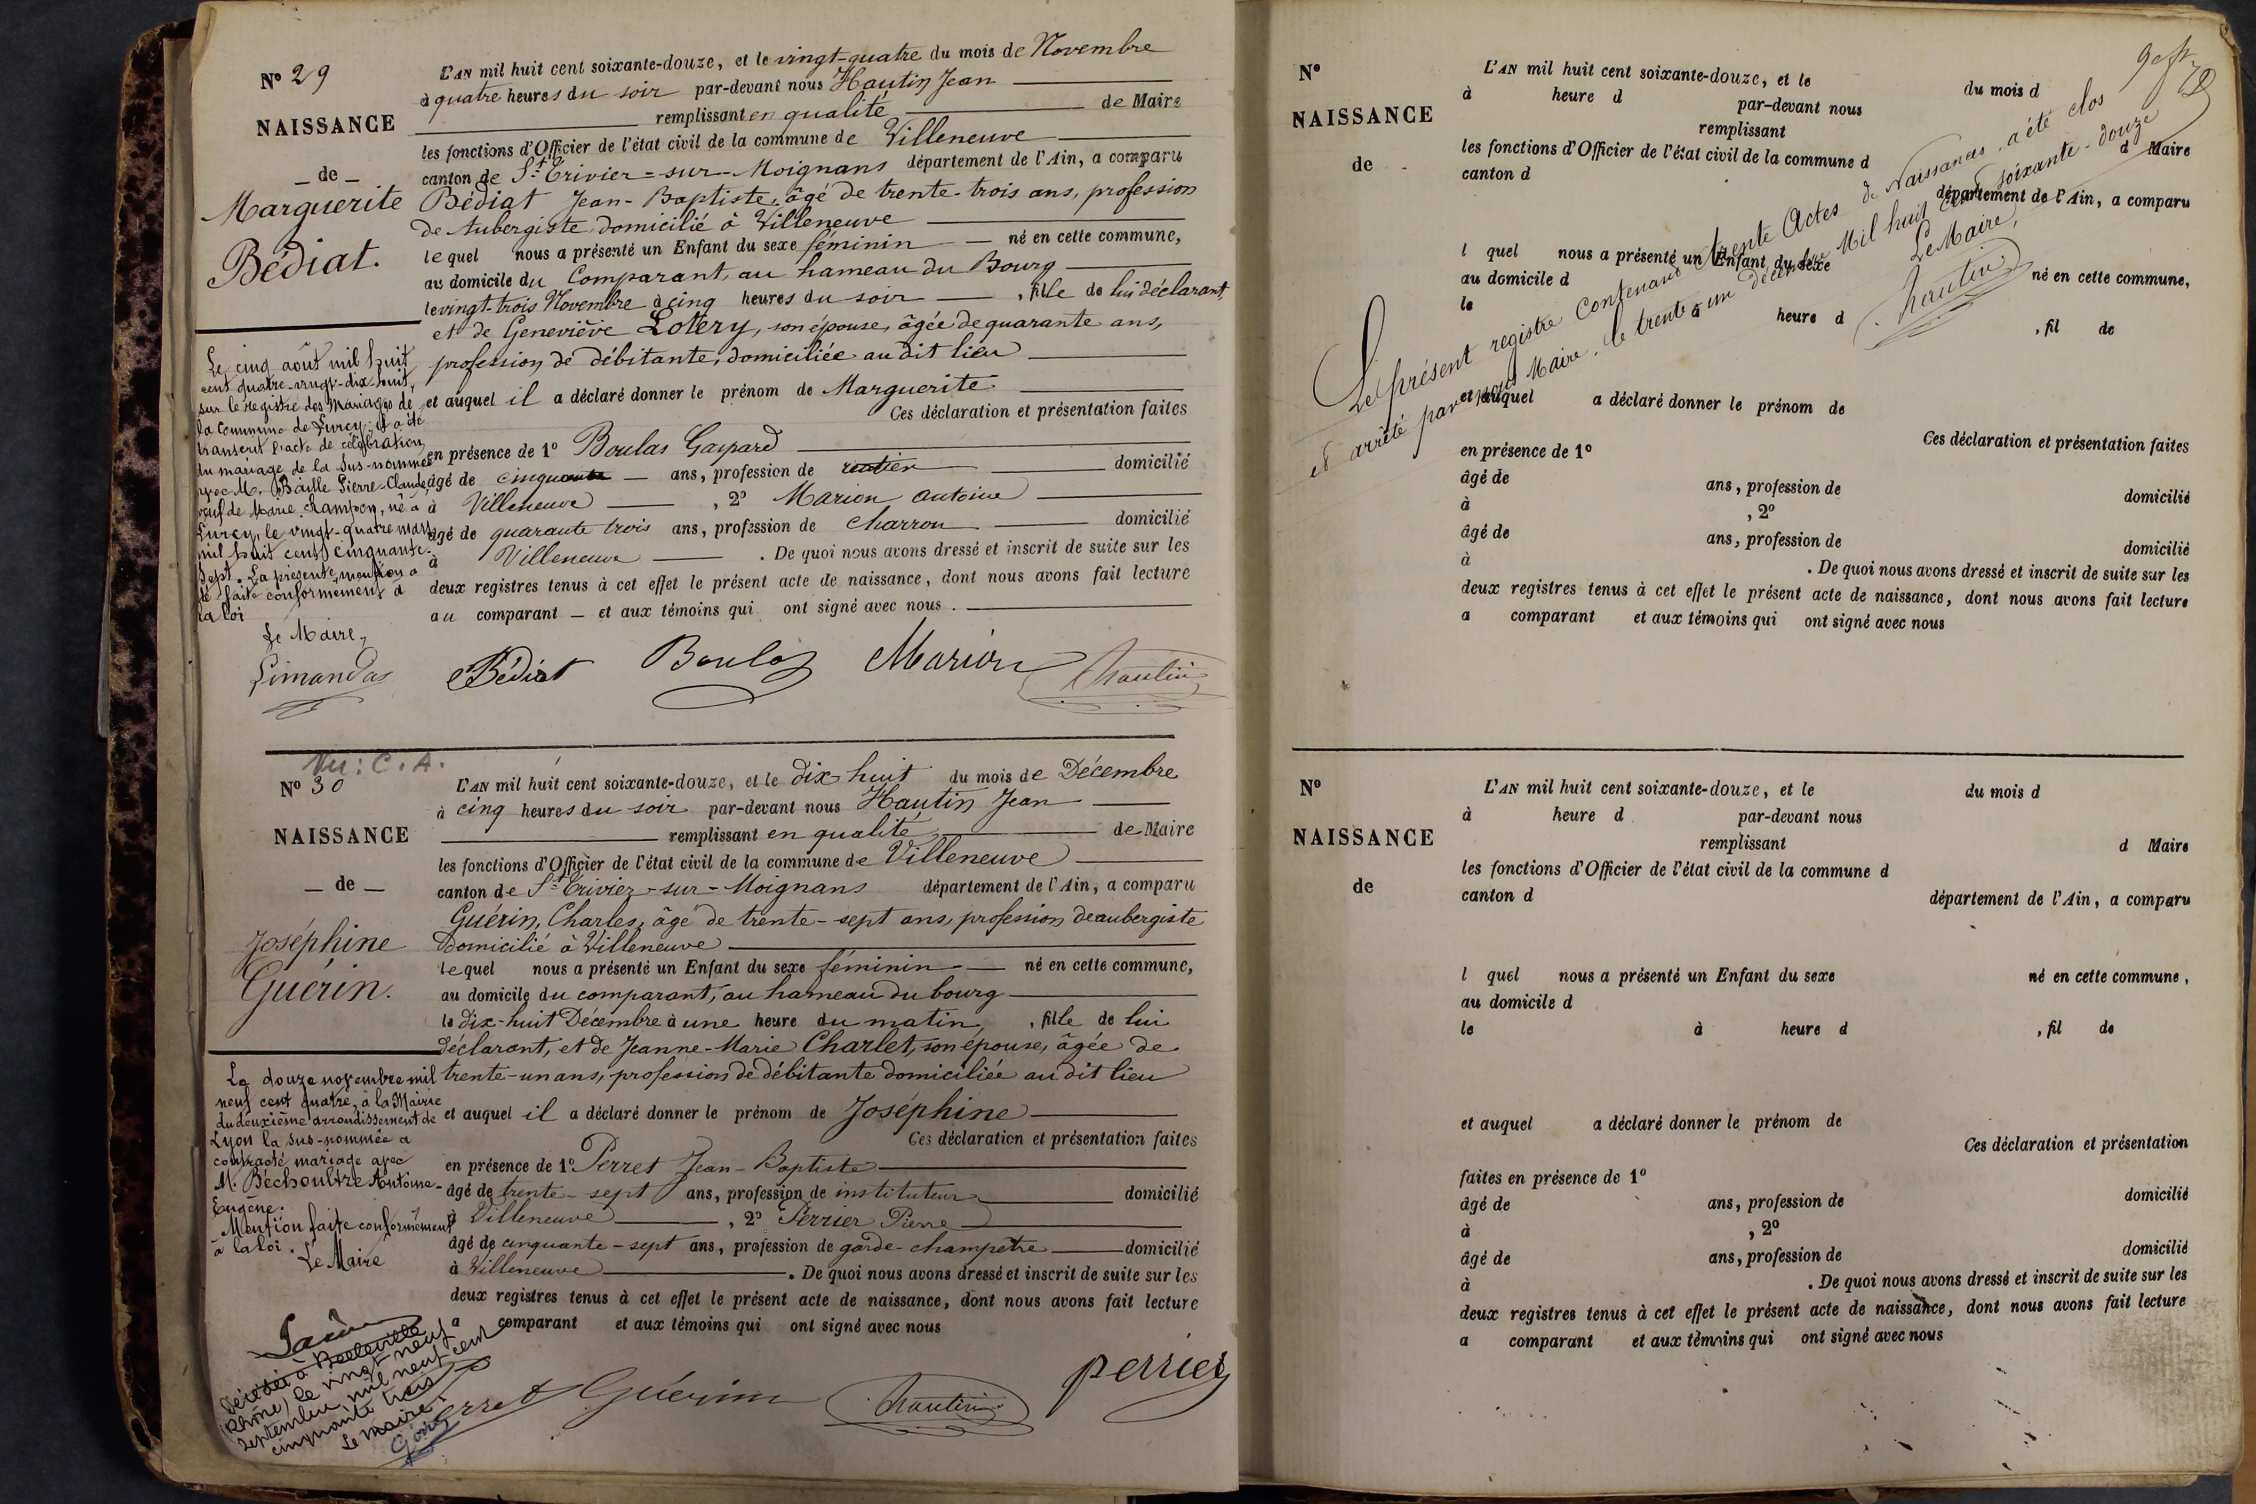 N° 29
NAISSANCE
— de —
Marguerite
Bédiat.
L'AN mil huit cent soixante-douze, et le vingt-quatre du mois de Novembre
à quatre heures du soir par-devant nous Hautin Jean
remplissant en qualité de Maire
les fonctions d'Officier de l'état civil de la commune de Villeneuve
canton de St Trivier-sur-Moignans département de l'Ain, a comparu
Bédiat Jean-Baptiste, âgé de trente-trois ans, profession
de Aubergiste, domicilié à Villeneuve
lequel nous a présenté un Enfant du sexe féminin né en cette commune,
au domicile du Comparant, au hameau du Bourg
le vingt-trois Novembre à cinq heures du soir , fille de lui déclarant,
et de Geneviève Lotery, son épouse, âgée de quarante ans,
profession de débitante, domiciliée au dit lieu
et auquel il a déclaré donner le prénom de Marguerite
Ces déclaration et présentation faites
en présence de 1° Boulas Gaspard
âgé de cinquante ans, profession de rentier domicilié
à Villeneuve , 2° Marion Antoine
âgé de quarante trois ans, profession de Charron domicilié
à Villeneuve . De quoi nous avons dressé et inscrit de suite sur les
deux registres tenus à cet effet le présent acte de naissance, dont nous avons fait lecture
au comparant — et aux témoins qui ont signé avec nous .
Bédiat Boulas Marion Hautin
Le cinq août mil huit
cent quatre-vingt-dix-huit,
sur le registre des Mariages de
la Commune de Lurcy, il a été
transcrit l'acte de célébration
du mariage de la sus-nommée
avec M. Baille Pierre-Claude
veuf de Marie Rampon, né à
Lurcy, le vingt-quatre mars
mil huit cent cinquante-
sept. La présente mention a
été faite conformément à
la loi
Le Maire,
Limandas
Vu : C. A.
N° 30
NAISSANCE
— de —
Joséphine
Guérin.
L'AN mil huit cent soixante-douze, et le dix huit du mois de Décembre
à cinq heures du soir par-devant nous Hautin Jean
remplissant en qualité de Maire
les fonctions d'Officier de l'état civil de la commune de Villeneuve
canton de St Trivier-sur-Moignans département de l'Ain, a comparu
Guérin, Charles, âgé de trente-sept ans, profession de aubergiste
domicilié à Villeneuve
lequel nous a présenté un Enfant du sexe féminin né en cette commune,
au domicile du comparant, au hameau du bourg
le dix-huit Décembre à une heure du matin , fille de lui
déclarant, et de Jeanne-Marie Charlet, son épouse, âgée de
trente-un ans, profession de débitante domiciliée au dit lieu
et auquel il a déclaré donner le prénom de Joséphine
Ces déclaration et présentation faites
en présence de 1° Perret Jean-Baptiste
âgé de trente-sept ans, profession de instituteur domicilié
à Villeneuve , 2° Perrier Pierre
âgé de cinquante-sept ans, profession de garde-champêtre domicilié
à Villeneuve . De quoi nous avons dressé et inscrit de suite sur les
deux registres tenus à cet effet le présent acte de naissance, dont nous avons fait lecture
a comparant et aux témoins qui ont signé avec nous
Perret Guérin Hautin perrier
Le douze novembre mil
neuf cent quatre, à la Mairie
du deuxième arrondissement de
Lyon la sus-nommée a
contracté mariage avec
M. Béchoultre Antoine-
Eugène.
Mention faite conformément
à la loi.
Le Maire
Décédée à Belleville
(Rhône) le vingt neuf
septembre mil neuf cent
cinquante trois
Le Maire
N°
NAISSANCE
de
L'AN mil huit cent soixante-douze, et le du mois d
à heure d par-devant nous
remplissant d Maire
les fonctions d'Officier de l'état civil de la commune d
canton d département de l'Ain, a comparu
l quel nous a présenté un Enfant du sexe né en cette commune,
au domicile d
le à heure d , fil de
et auquel a déclaré donner le prénom de
Ces déclaration et présentation faites
en présence de 1°
âgé de ans, profession de domicilié
à , 2°
âgé de ans, profession de domicilié
à . De quoi nous avons dressé et inscrit de suite sur les
deux registres tenus à cet effet le présent acte de naissance, dont nous avons fait lecture
a comparant et aux témoins qui ont signé avec nous
Le présent registre contenant trente Actes de Naissances a été clos
et arrêté par nous Maire, le trente un décembre Mil huit cent soixante-douze
Le Maire,
Hautin
N°
NAISSANCE
de
L'AN mil huit cent soixante-douze, et le du mois d
à heure d par-devant nous
remplissant d Maire
les fonctions d'Officier de l'état civil de la commune d
canton d département de l'Ain, a comparu
l quel nous a présenté un Enfant du sexe né en cette commune,
au domicile d
le à heure d , fil de
et auquel a déclaré donner le prénom de
Ces déclaration et présentation
faites en présence de 1°
âgé de ans, profession de domicilié
à , 2°
âgé de ans, profession de domicilié
à . De quoi nous avons dressé et inscrit de suite sur les
deux registres tenus à cet effet le présent acte de naissance, dont nous avons fait lecture
a comparant et aux témoins qui ont signé avec nous